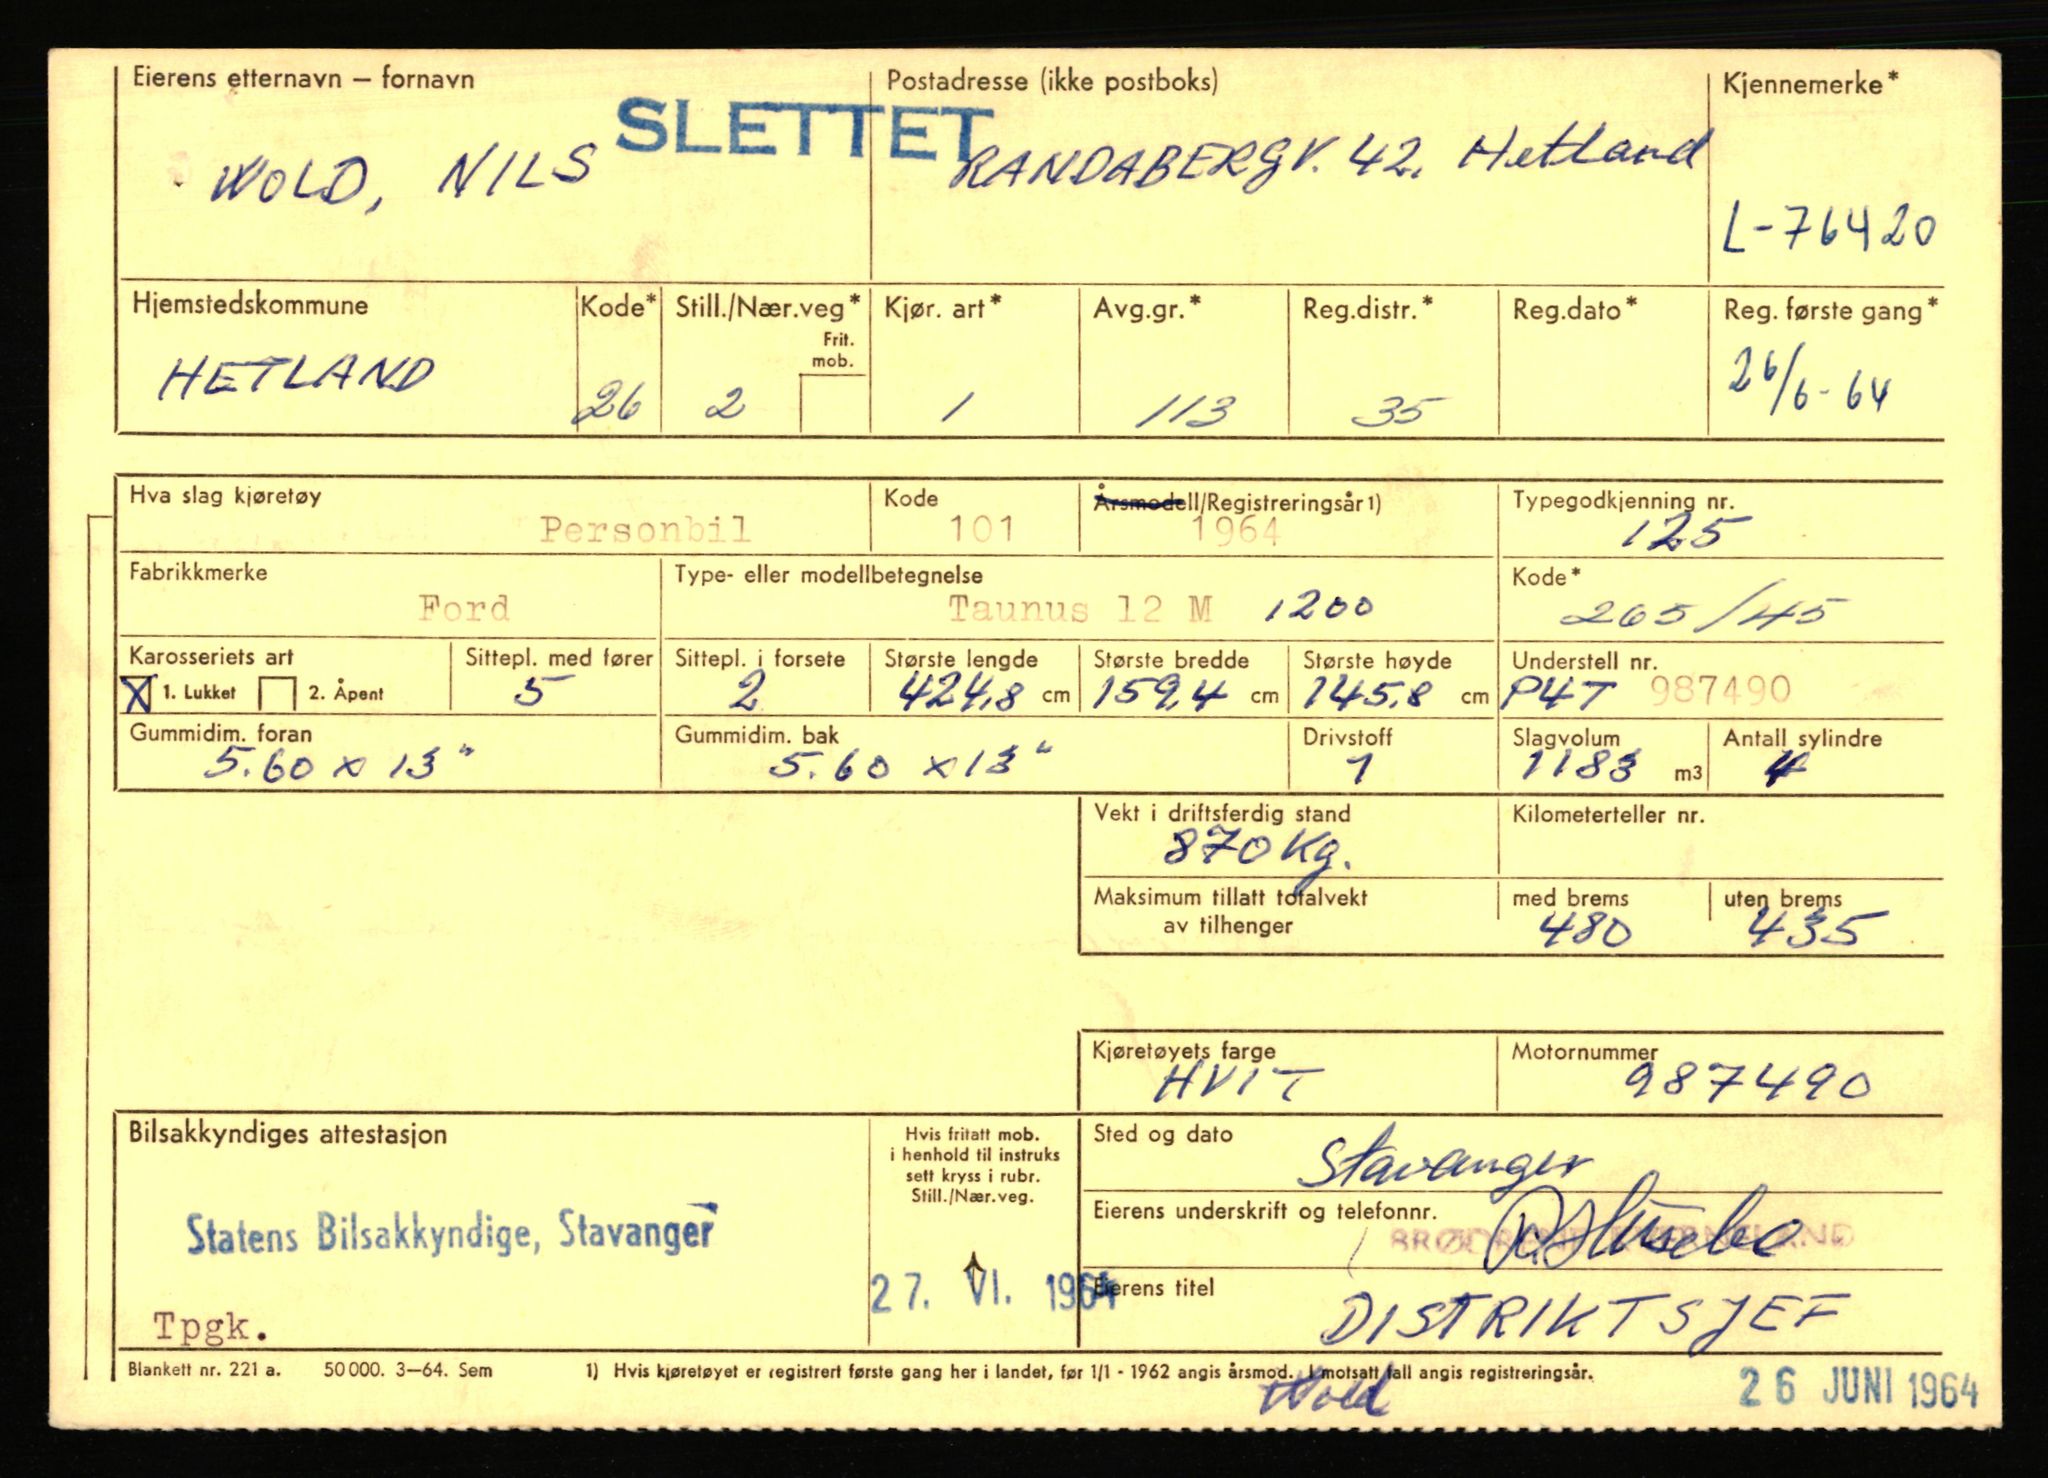 Eierens etternavn – fornavn
WOLD, NILS
SLETTET
Postadresse (ikke postboks)
RANDABERGV. 42, Hetland
Kjennemerke*
L-76420
Hjemstedskommune
HETLAND
Kode*
26
Still./Nær.veg*
Frit.
mob.
2
Kjør. art*
1
Avg.gr.*
113
Reg.distr.*
35
Reg.dato*
Reg. første gang*
26/6-64
Hva slag kjøretøy
Personbil
Kode
101
Årsmodell/Registreringsår 1)
1964
Typegodkjenning nr.
125
Fabrikkmerke
Ford
Type- eller modellbetegnelse
Taunus 12 M 1200
Kode*
265/45
Karosseriets art
X 1. Lukket 2. Åpent
Sittepl. med fører
5
Sittepl. i forsete
2
Største lengde
424,8 cm
Største bredde
159,4 cm
Største høyde
145,8 cm
Understell nr.
P4T 987490
Gummidim. foran
5.60 x 13"
Gummidim. bak
5.60 x 13"
Drivstoff
1
Slagvolum
1183 m3
Antall sylindre
4
Vekt i driftsferdig stand
870 Kg.
Kilometerteller nr.
Maksimum tillatt totalvekt
av tilhenger
med brems
480
uten brems
435
Kjøretøyets farge
HVIT
Motornummer
987490
Bilsakkyndiges attestasjon
Statens Bilsakkyndige, Stavanger
Tpgk.
Hvis fritatt mob.
i henhold til instruks
sett kryss i rubr.
Still./Nær.veg.
27. VI. 1964
Sted og dato
Stavanger
Eierens underskrift og telefonnr.
Eierens titel
DISTRIKTSJEF
Blankett nr. 221 a. 50 000. 3–64. Sem
1) Hvis kjøretøyet er registrert første gang her i landet, før 1/1 - 1962 angis årsmod. I motsatt fall angis registreringsår.
Wold
26 JUNI 1964